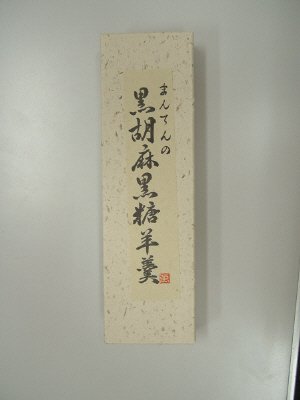 まんてんの
黒胡麻黒糖羊羹